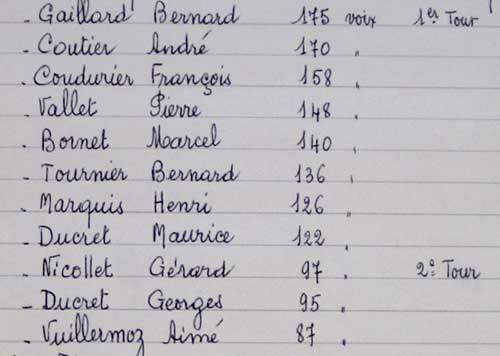 - Gaillard Bernard 175 voix 1er Tour
- Coutier André 170 "
- Coudurier François 158 "
- Vallet Pierre 148 "
- Bornet Marcel 140 "
- Tournier Bernard 136 "
- Marquis Henri 126 "
- Ducret Maurice 122 "
- Nicollet Gérard 97 " 2e Tour
- Ducret Georges 95 "
- Vuillermoz Aimé 87 "